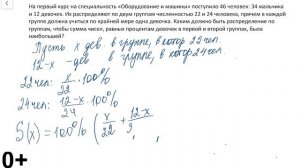 На первый курс на специальность «Оборудование и машины» поступило 46 человек: 34 мальчика
и 12 девочек. Их распределяют по двум группам численностью 22 и 24 человека, причем в каждой
группе должна учиться по крайней мере одна девочка. Каким должно быть распределение по
группам, чтобы сумма чисел, равных процентам девочек в первой и второй группах, была
наибольшей?
Пусть x дев. в группе, в котор 22 чел.
12-x - дев в группе, в котор 24 чел.
22 чел: x/22 · 100%
24 чел: 12-x/24 · 100%
S(x) = 100% (x/22 + 12-x/2
0+